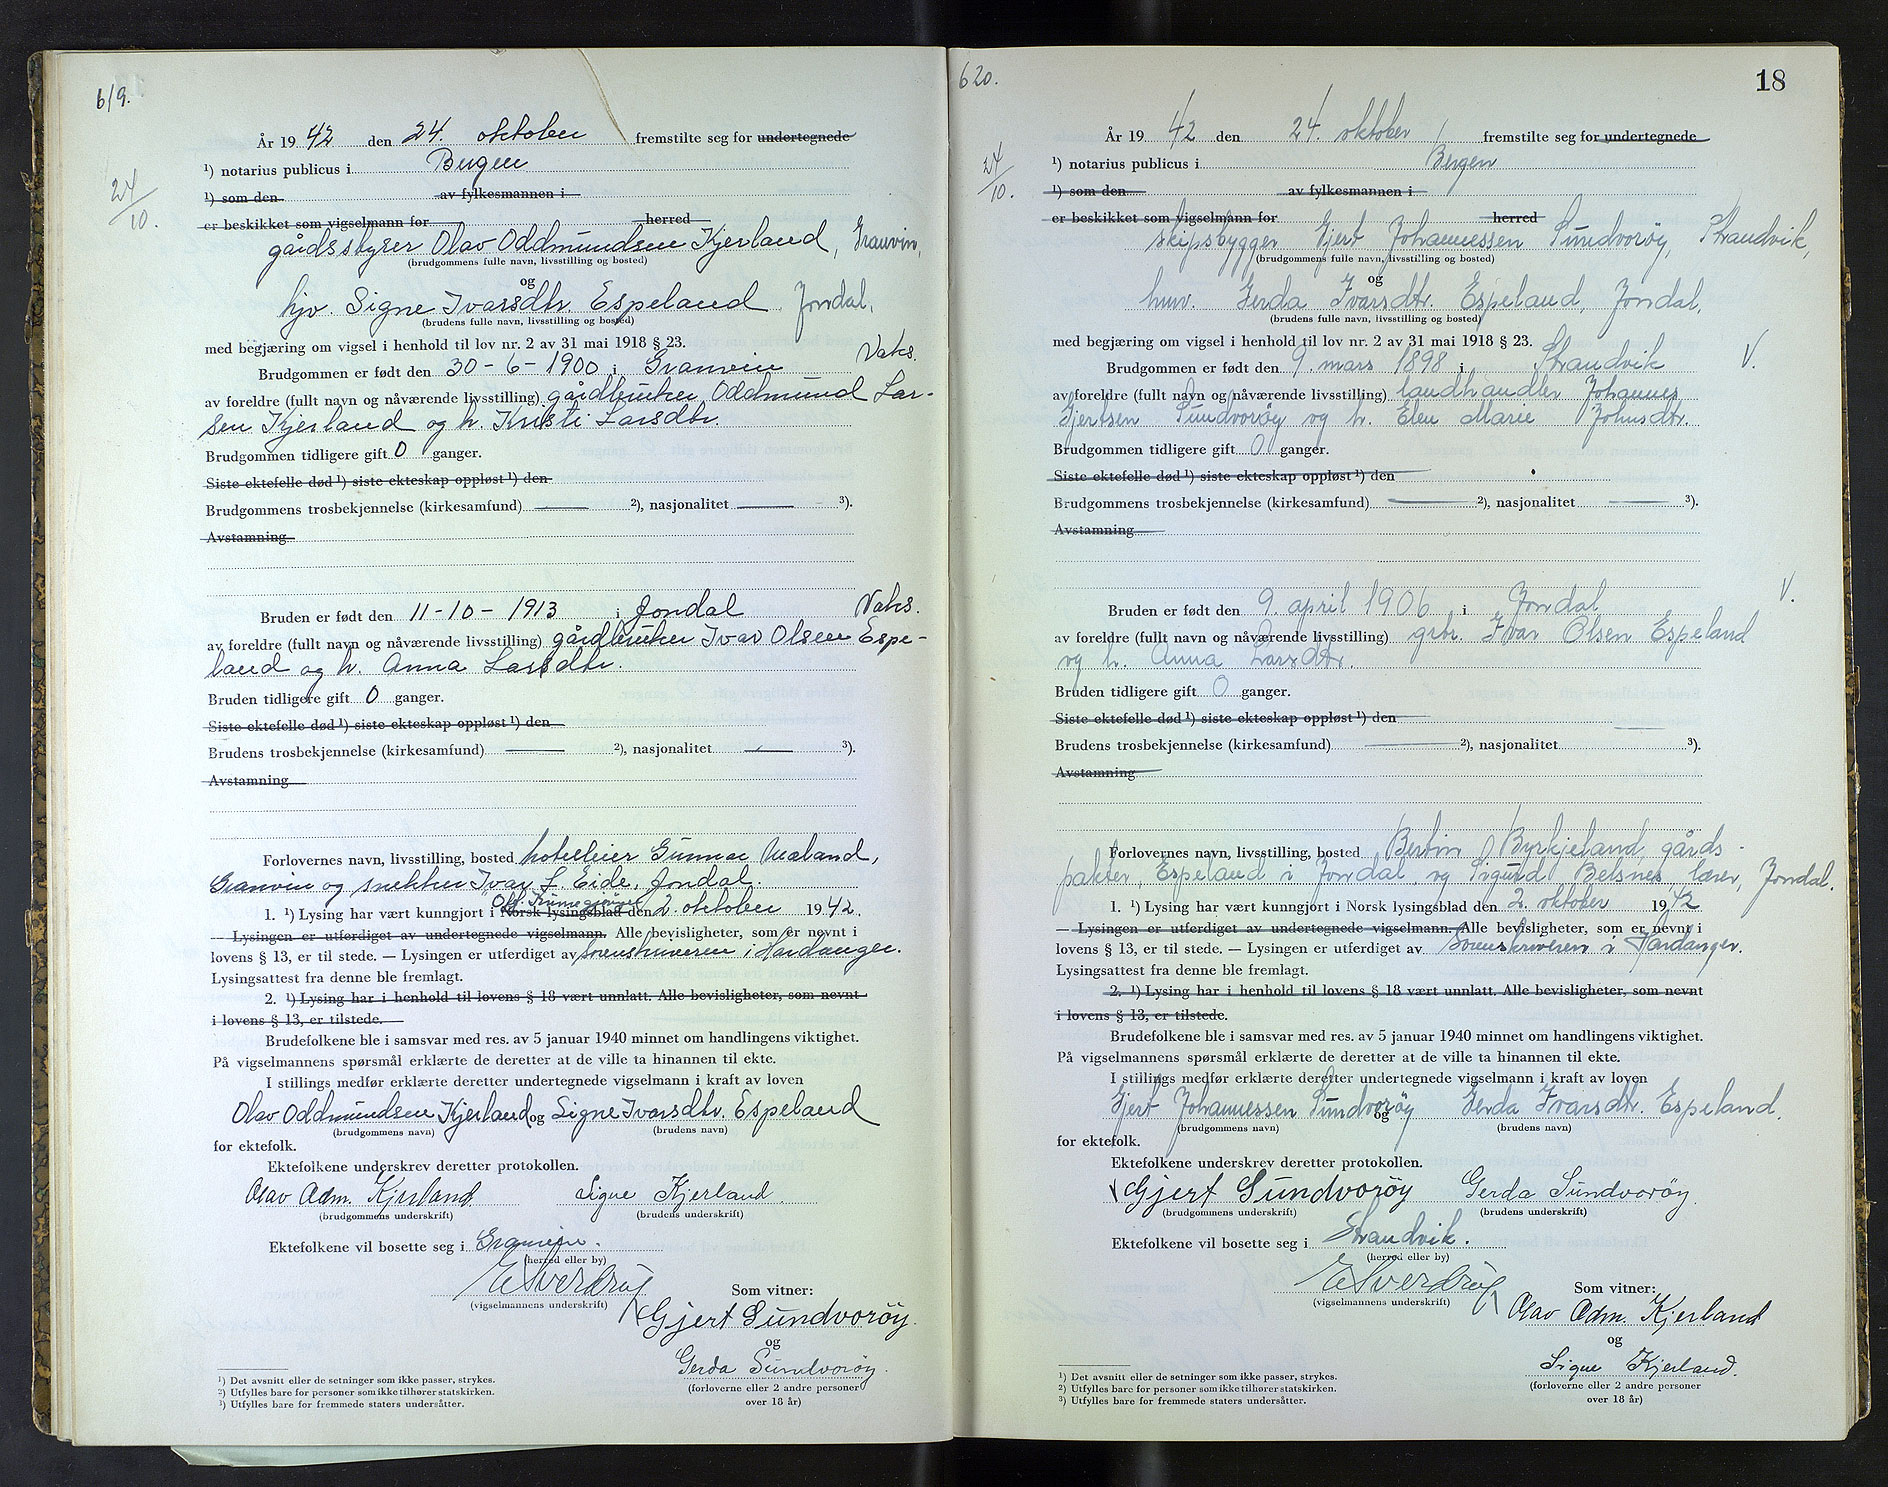 619.
År 19 42 den 24. oktober fremstilte seg for undertegnede
¹) notarius publicus i Bergen
24/10.
¹) som den av fylkesmannen i
er beskikket som vigselmann for herred
gårdsstyrer Olav Oddmundsen Kjerland, Granvin,
(brudgommens fulle navn, livsstilling og bosted)
og
hjv. Signe Ivarsdtr. Espeland Jondal,
(brudens fulle navn, livsstilling og bosted)
med begjæring om vigsel i henhold til lov nr. 2 av 31 mai 1918 § 23.
Vaks.
Brudgommen er født den 30-6-1900 i Granvin
av foreldre (fullt navn og nåværende livsstilling) gårdbruker Oddmund Lar-
sen Kjerland og h. Kristi Larsdtr.
Brudgommen tidligere gift 0 ganger.
Siste ektefelle død ¹) siste ekteskap oppløst ¹) den
Brudgommens trosbekjennelse (kirkesamfund) — ²), nasjonalitet — ³).
Avstamning
Bruden er født den 11-10-1913 i Jondal Vaks.
av foreldre (fullt navn og nåværende livsstilling) gårdbruker Ivar Olsen Espe-
land og h. Anna Larsdtr.
Bruden tidligere gift 0 ganger.
Siste ektefelle død ¹) siste ekteskap oppløst ¹) den
Brudens trosbekjennelse (kirkesamfund) — ²), nasjonalitet — ³).
Avstamning
Forlovernes navn, livsstilling, bosted hotelleier Gunnar Mæland,
Granvin og snekker Ivar J. Eide, Jondal.
Off. Kunngjøringer
1. ¹) Lysing har vært kunngjort i Norsk lysingsblad den 2. oktober 1942.
— Lysingen er utferdiget av undertegnede vigselmann. Alle bevisligheter, som er nevnt i
lovens § 13, er til stede. — Lysingen er utferdiget av Sorenskriveren i Hardanger.
Lysingsattest fra denne ble fremlagt.
2. ¹) Lysing har i henhold til lovens § 18 vært unnlatt. Alle bevisligheter, som nevnt
i lovens § 13, er tilstede.
Brudefolkene ble i samsvar med res. av 5 januar 1940 minnet om handlingens viktighet.
På vigselmannens spørsmål erklærte de deretter at de ville ta hinannen til ekte.
I stillings medfør erklærte deretter undertegnede vigselmann i kraft av loven
Olav Oddmundsen Kjerland og Signe Ivarsdtr. Espeland
(brudgommens navn) (brudens navn)
for ektefolk.
Ektefolkene underskrev deretter protokollen.
Olav Odm. Kjerland Signe Kjerland
(brudgommens underskrift) (brudens underskrift)
Ektefolkene vil bosette seg i Granvin.
(herred eller by)
(vigselmannens underskrift) Som vitner:
Gjert Sundvorøy.
og
Gerda Sundvorøy.
(forloverne eller 2 andre personer
over 18 år)
¹) Det avsnitt eller de setninger som ikke passer, strykes.
²) Utfylles bare for personer som ikke tilhører statskirken.
³) Utfylles bare for fremmede staters undersåtter.
620.
18
År 19 42 den 24. oktober fremstilte seg for undertegnede
¹) notarius publicus i Bergen
24/10.
¹) som den av fylkesmannen i
er beskikket som vigselmann for herred
skipsbygger Gjert Johannessen Sundvorøy, Strandvik,
(brudgommens fulle navn, livsstilling og bosted)
og
husv. Gerda Ivarsdtr. Espeland, Jondal,
(brudens fulle navn, livsstilling og bosted)
med begjæring om vigsel i henhold til lov nr. 2 av 31 mai 1918 § 23.
Brudgommen er født den 9. mars 1898 i Strandvik V.
av foreldre (fullt navn og nåværende livsstilling) landhandler Johannes
Gjertsen Sundvorøy og h. Elen Marie Johnsdtr.
Brudgommen tidligere gift 0 ganger.
Siste ektefelle død ¹) siste ekteskap oppløst ¹) den
Brudgommens trosbekjennelse (kirkesamfund) — ²), nasjonalitet — ³).
Avstamning
Bruden er født den 9. april 1906 i Jondal V.
av foreldre (fullt navn og nåværende livsstilling) grbr. Ivar Olsen Espeland
og h. Anna Larsdtr.
Bruden tidligere gift 0 ganger.
Siste ektefelle død ¹) siste ekteskap oppløst ¹) den
Brudens trosbekjennelse (kirkesamfund) — ²), nasjonalitet ³).
Avstamning
Forlovernes navn, livsstilling, bosted Bertin Byrkjeland, gårds-
pakter, Espeland i Jondal og Sigurd Belsnes, lærer, Jondal.
1. ¹) Lysing har vært kunngjort i Norsk lysingsblad den 2. oktober 1942
— Lysingen er utferdiget av undertegnede vigselmann. Alle bevisligheter, som er nevnt i
lovens § 13, er til stede. — Lysingen er utferdiget av Sorenskriveren i Hardanger.
Lysingsattest fra denne ble fremlagt.
2. ¹) Lysing har i henhold til lovens § 18 vært unnlatt. Alle bevisligheter, som nevnt
i lovens § 13, er tilstede.
Brudefolkene ble i samsvar med res. av 5 januar 1940 minnet om handlingens viktighet.
På vigselmannens spørsmål erklærte de deretter at de ville ta hinannen til ekte.
I stillings medfør erklærte deretter undertegnede vigselmann i kraft av loven
Gjert Johannessen Sundvorøy og Gerda Ivarsdtr. Espeland.
(brudgommens navn) (brudens navn)
for ektefolk.
Ektefolkene underskrev deretter protokollen.
Gjert Sundvorøy Gerda Sundvorøy
(brudgommens underskrift) (brudens underskrift)
Ektefolkene vil bosette seg i Strandvik.
(herred eller by)
(vigselmannens underskrift) Som vitner:
Olav Odm. Kjerland
og
Signe Kjerland.
(forloverne eller 2 andre personer
over 18 år)
¹) Det avsnitt eller de setninger som ikke passer, strykes.
²) Utfylles bare for personer som ikke tilhører statskirken.
³) Utfylles bare for fremmede staters undersåtter.